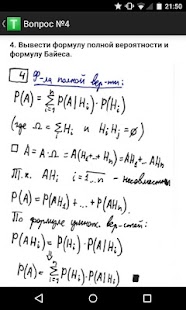 21:50
Вопрос №4
4. Вывести формулу полной вероятности и
формулу Байеса.
4 Ф-ла полной вер-ти:
P(A) = ∑ᵢ₌₁ⁿ P(A|Hᵢ)·P(Hᵢ)
(где Ω = ∑ Hᵢ и Hᵢ Hⱼ = ∅)
□ A = A·Ω = A(H₁+...+Hₙ) = AH₁+...AHₙ
Т.к. AHᵢ i=1...n - несовместны
□ P(A) = P(AH₁) + ... + P(AHₙ)
По формуле умнож. вер-стей:
P(AHᵢ) = P(Hᵢ)·P(A|Hᵢ)
P(A) = ∑ᵢ₌₁ⁿ P(Hᵢ)·P(A|Hᵢ)